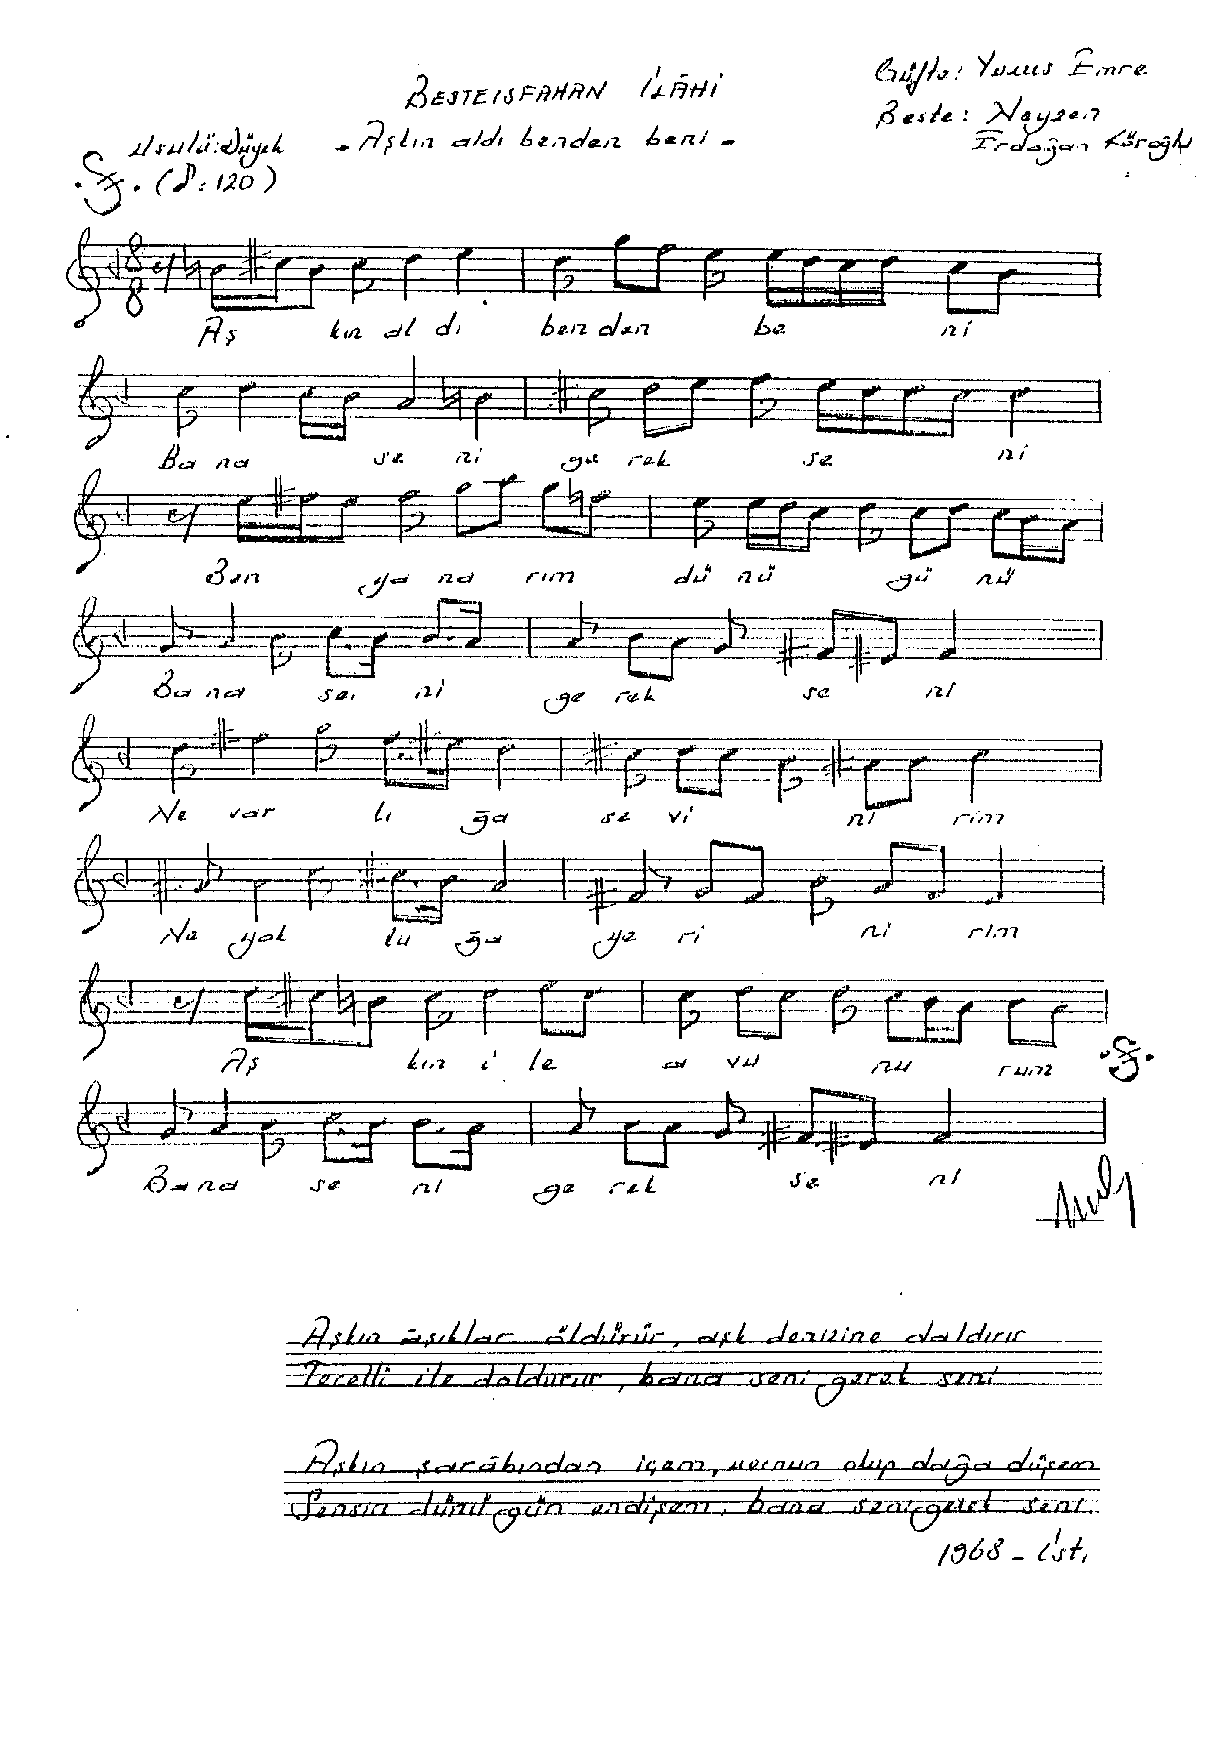 BESTEISFAHAN İLÂHİ
Güfte: Yunus Emre
Beste: Neyzen
Erdoğan Köroğlu
Usulü: Düyek
- Aşkın aldı benden beni -
( ♪: 120 )
8
8
Aş kın al dı ben den be ni
Ba na se ni ge rek se ni
Ben ya na rım dü nü gü nü
Ba na se ni ge rek se ni
Ne var lı ğa se vi ni rim
Ne yok lu ğa ye ri ni rim
Aş kın i le a vu nu rum
Ba na se ni ge rek se ni
Aşkın âşıklar öldürür, aşk denizine daldırır
Tecelli ile doldurur, bana seni gerek seni
Aşkın şarâbından içem, mecnun olup dağa düşem
Sensin dünü gün endişem, bana seni gerek seni.
1968 - İst.